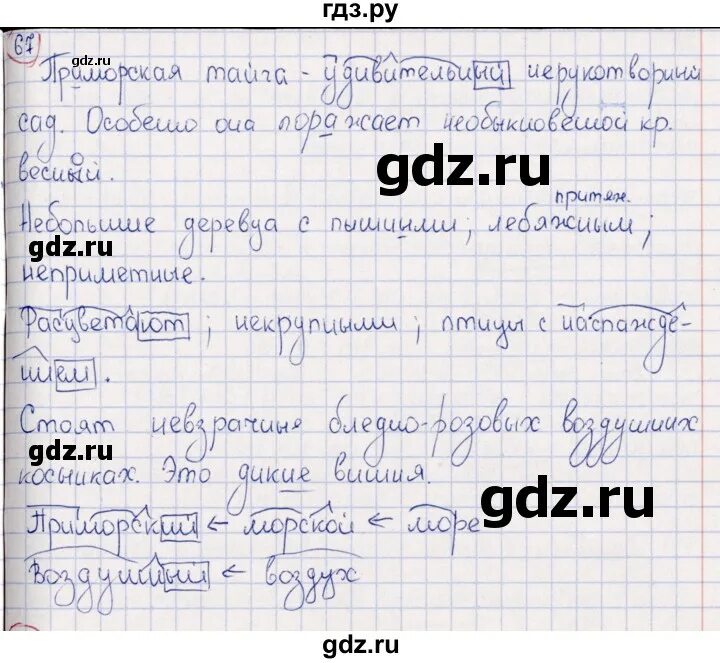 гдз.ру
67
gdz.ru
Приморская тайга - удивительный нерукотворный
сад. Особенно она поражает необыкновенной кр.
gdz.ru
весной.
притяж.
Небольшие деревца с пышными; лебяжным;
gdz.ru
неприметные.
Расцветают; некрупными; птицы с наслажде-
нием.
Стоят невзрачные бледно-розовых воздушных
gdz.ru
косынках. Это дикие вишня.
gdz.ru
Приморский ← морской ← море
Воздушный ← воздух
gdz.ru